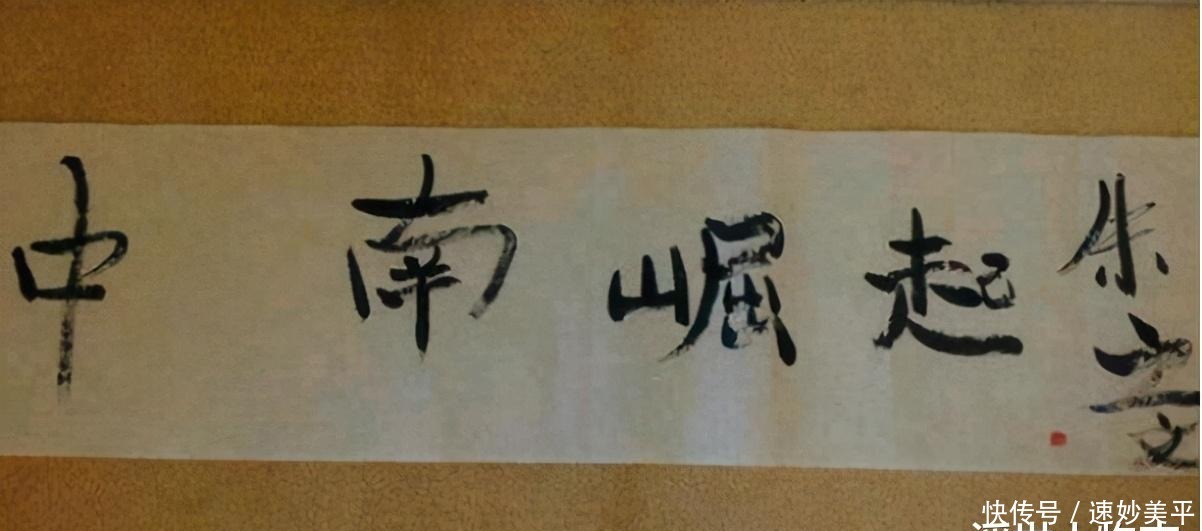 中南崛起
朱
文
快传号 / 速妙美平